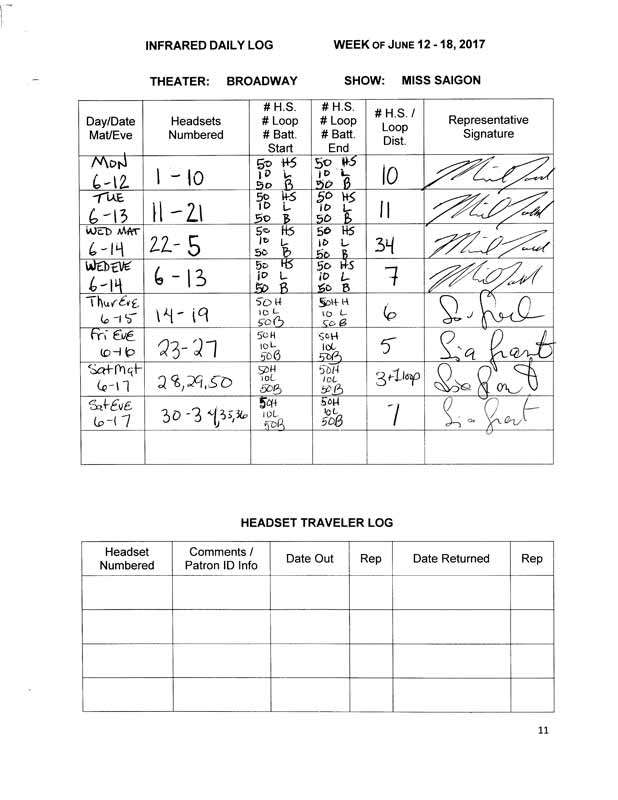 INFRARED DAILY LOG WEEK OF JUNE 12 - 18, 2017
THEATER: BROADWAY SHOW: MISS SAIGON
Day/Date Mat/Eve Headsets Numbered # H.S. # Loop # Batt. Start # H.S. # Loop # Batt. End # H.S. / Loop Dist. Representative Signature
MON 6-12 1-10 50 HS 10 L 50 B 50 HS 10 L 50 B 10
TUE 6-13 11-21 50 HS 10 L 50 B 50 HS 10 L 50 B 11
WED MAT 6-14 22-5 50 HS 10 L 50 B 50 HS 10 L 50 B 34
WED EVE 6-14 6-13 50 HS 10 L 50 B 50 HS 10 L 50 B 7
Thur Eve 6-15 14-19 50H 10L 50B 50H H 10 L 50 B 6
Fri EVE 6-16 23-27 50H 10L 50B 50H 10L 50B 5
Sat Mat 6-17 28,29,50 50H 10L 50B 50H 10L 50B 3+1loop
Sat EVE 6-17 30-34,35,36 50H 10L 50B 50H 10L 50B 7
HEADSET TRAVELER LOG
Headset Numbered Comments / Patron ID Info Date Out Rep Date Returned Rep
11